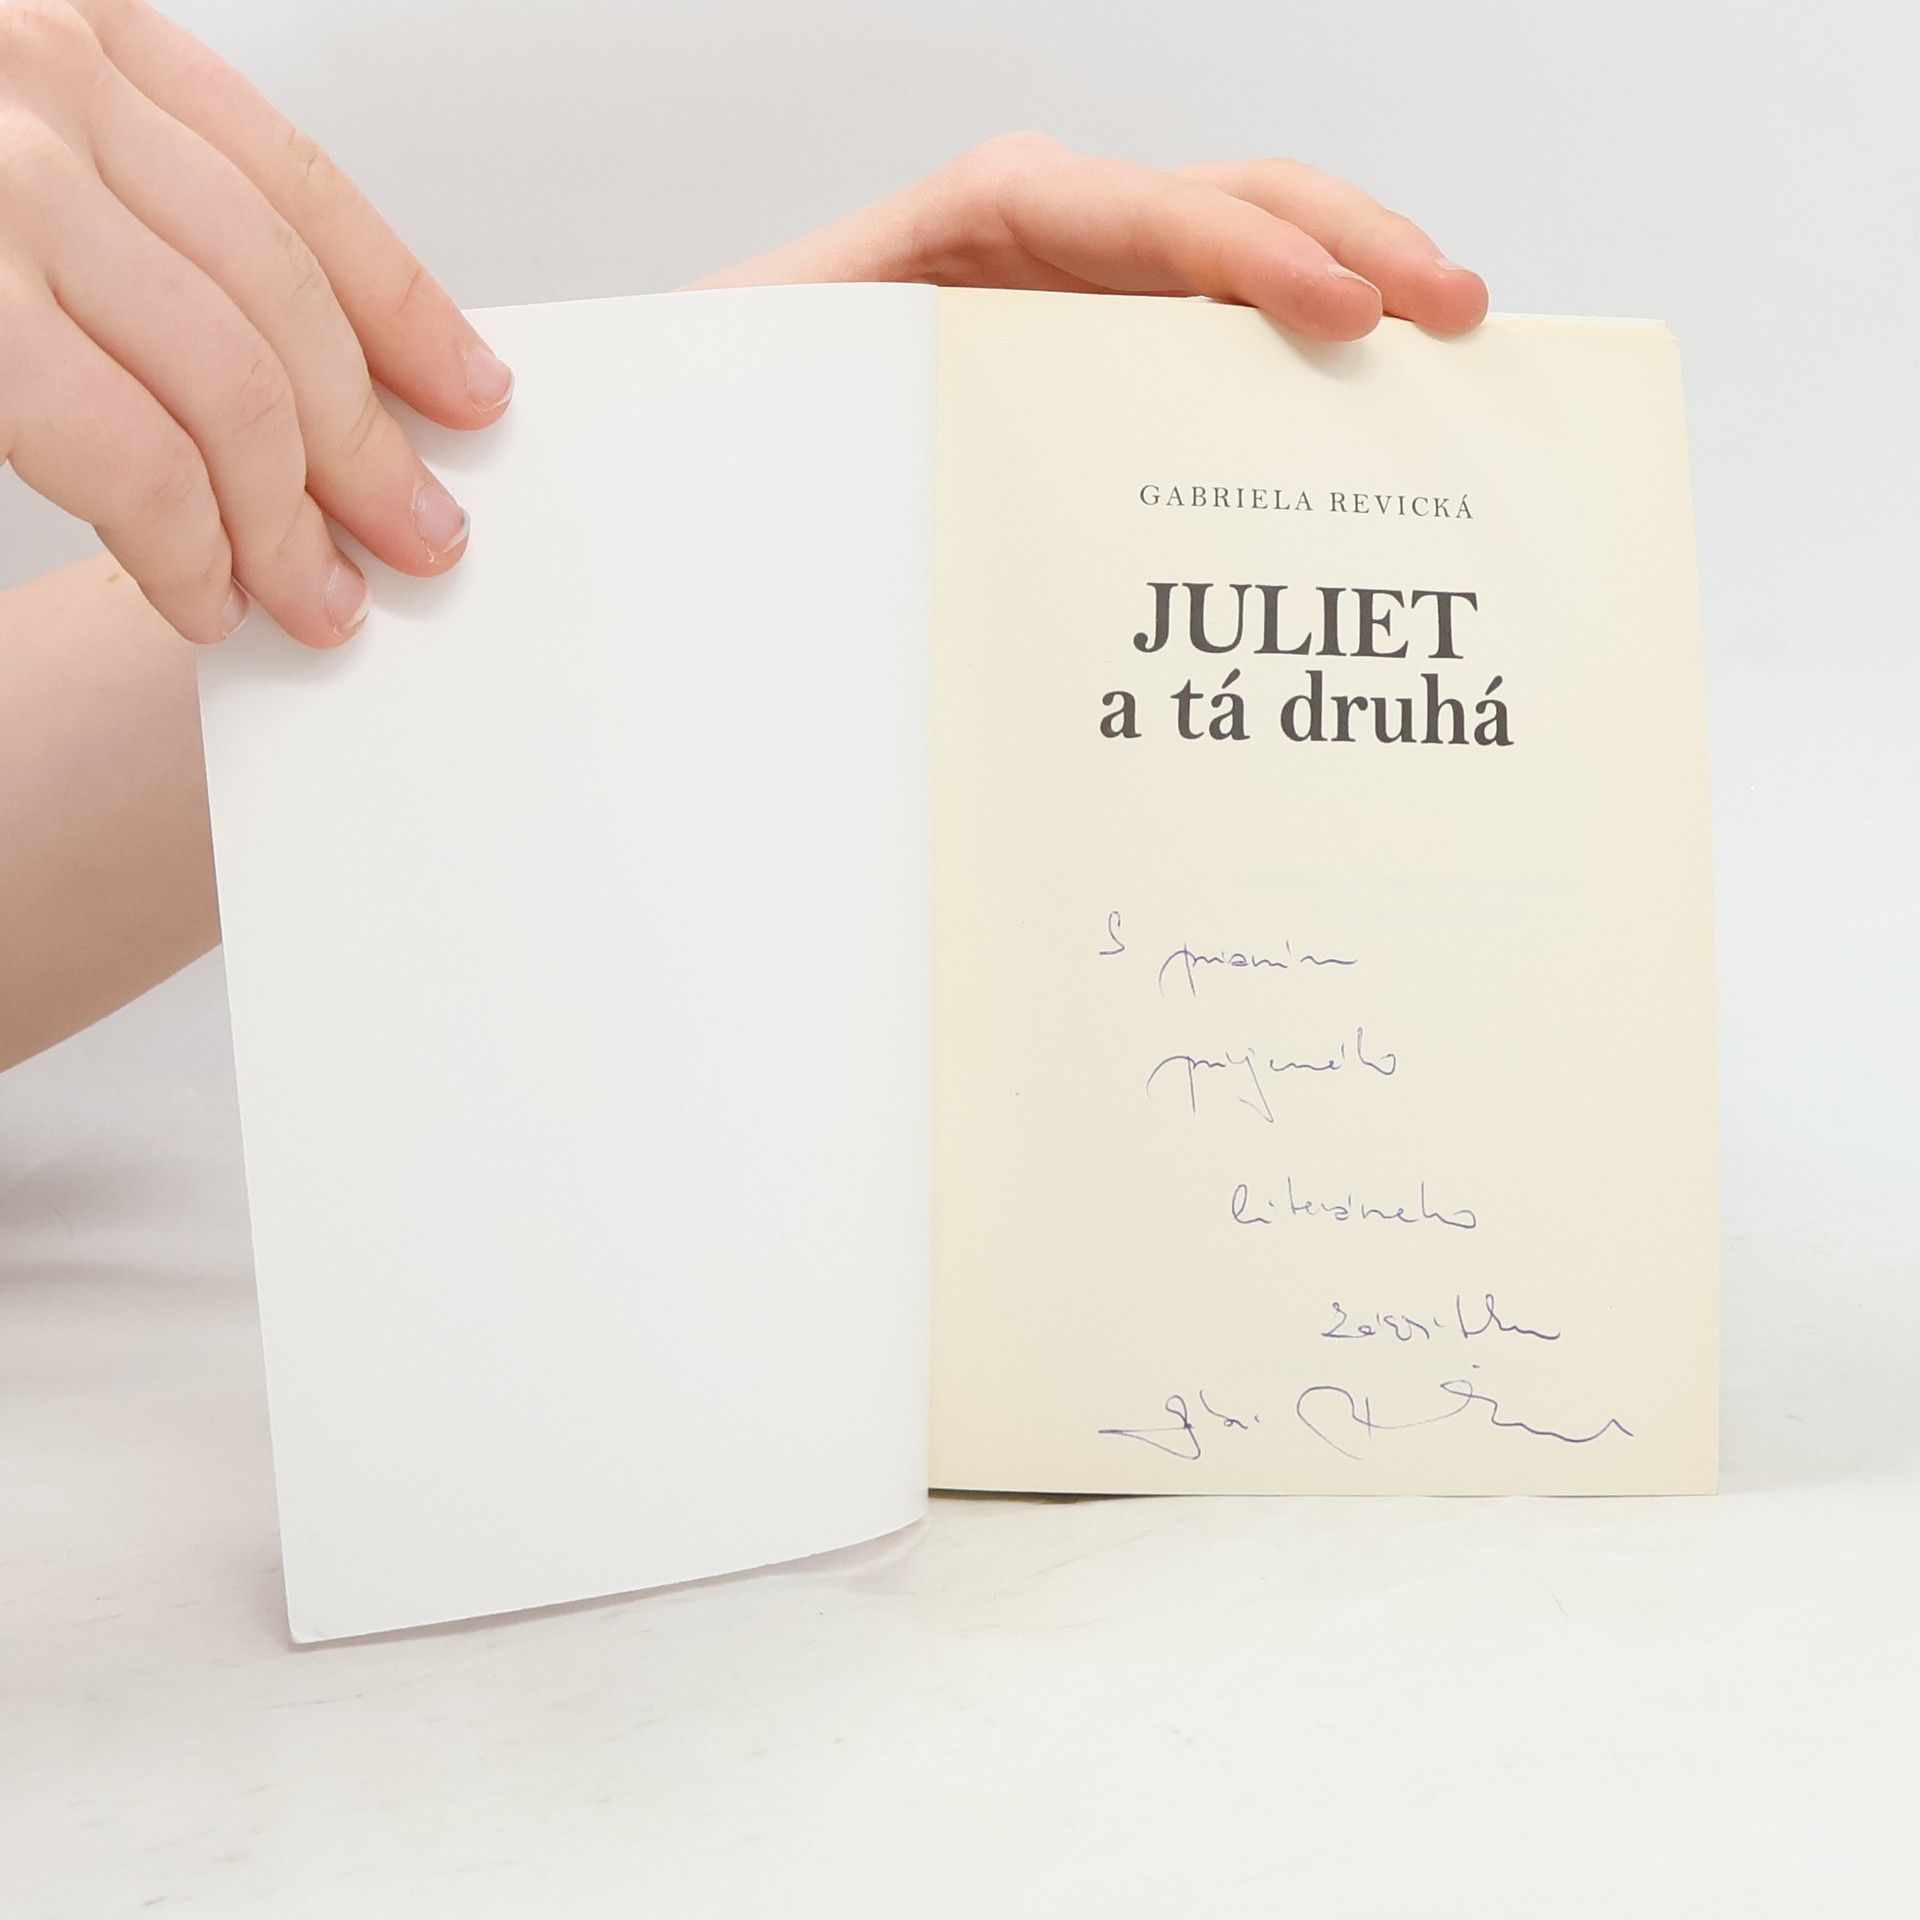 GABRIELA REVICKÁ
JULIET
a tá druhá
S prianím
príjemného
literárneho
zážitku